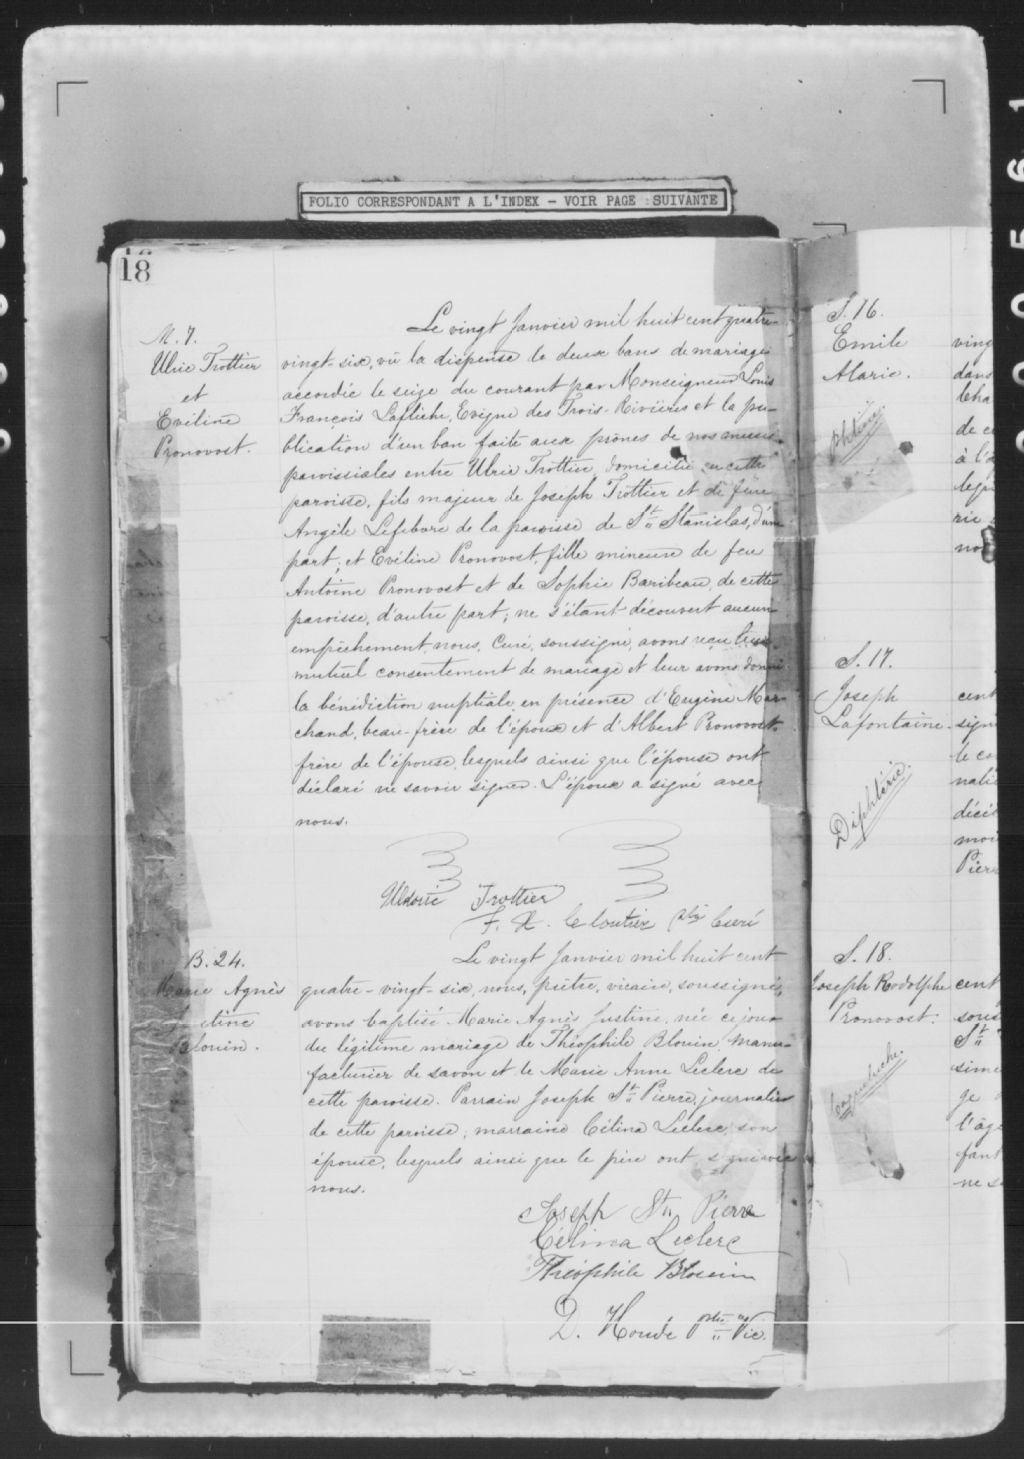 FOLIO CORRESPONDANT A L'INDEX - VOIR PAGE : SUIVANTE
18
M. 7.
Ulric Trottier
et
Evéline
Pronovost.
Le vingt Janvier mil huit cent quatre-
vingt-six, vû la dispense de deux bans de mariage
accordée le seize du courant par Monseigneur Louis
François Laflèche, Evêque des Trois-Rivières et la pu-
blication d'un ban faite aux prônes de nos messes
paroissiales entre Ulric Trottier, domicilié en cette
paroisse, fils majeur de Joseph Trottier et de feue
Angèle Lefebvre de la paroisse de St Stanislas, d'une
part; et Evéline Pronovost, fille mineure de feu
Antoine Pronovost et de Sophie Baribeau, de cette
paroisse, d'autre part; ne s'étant découvert aucun
empêchement, nous, Curé, soussigné, avons reçu leur
mutuel consentement de mariage et leur avons donné
la bénédiction nuptiale en présence d'Eugène Mar-
chand, beau-frère de l'époux et d'Albert Pronovost,
frère de l'épouse, lesquels ainsi que l'épouse ont
déclaré ne savoir signer. L'époux a signé avec
nous.
Trottier
F. X. Cloutier ptre Curé
B. 24.
Marie Agnès
Justine
Blouin.
Le vingt Janvier mil huit cent
quatre-vingt-six, nous, prêtre, vicaire, soussigné,
avons baptisé Marie Agnès Justine, née ce jour
du légitime mariage de Théophile Blouin, manu-
facturier de savon et de Marie Anne Leclerc de
cette paroisse. Parrain Joseph St Pierre, journalier
de cette paroisse; marraine Célina Leclerc, son
épouse, lesquels ainsi que le père ont signé avec
nous.
Joseph St Pierre
Célina Leclerc
Théophile Blouin
D. Houde Ptre Vic.
S. 16.
Emile
Alarie.
S. 17.
Joseph
Lafontaine
Diphtérie.
S. 18.
Joseph Rodolphe
Pronovost.
Coqueluche.
ving
dans
Cha
de c
à l'â
cent
sign
le co
nali
décé
moi
Pierr
cent
sous
St
sime
ge
l'âg
fant
ne s